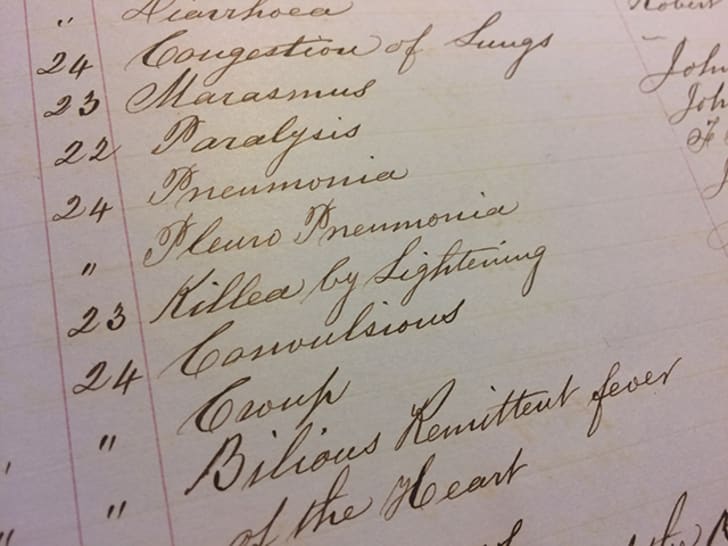 " Diarrhoea Robert
24 Congestion of Lungs
23 Marasmus John
22 Paralysis Joh
24 Pneumonia F
" Pleuro Pneumonia J
23 Killed by Lightening
24 Convulsions
" Croup
" Bilious Remittent fever
" of the Heart
of the